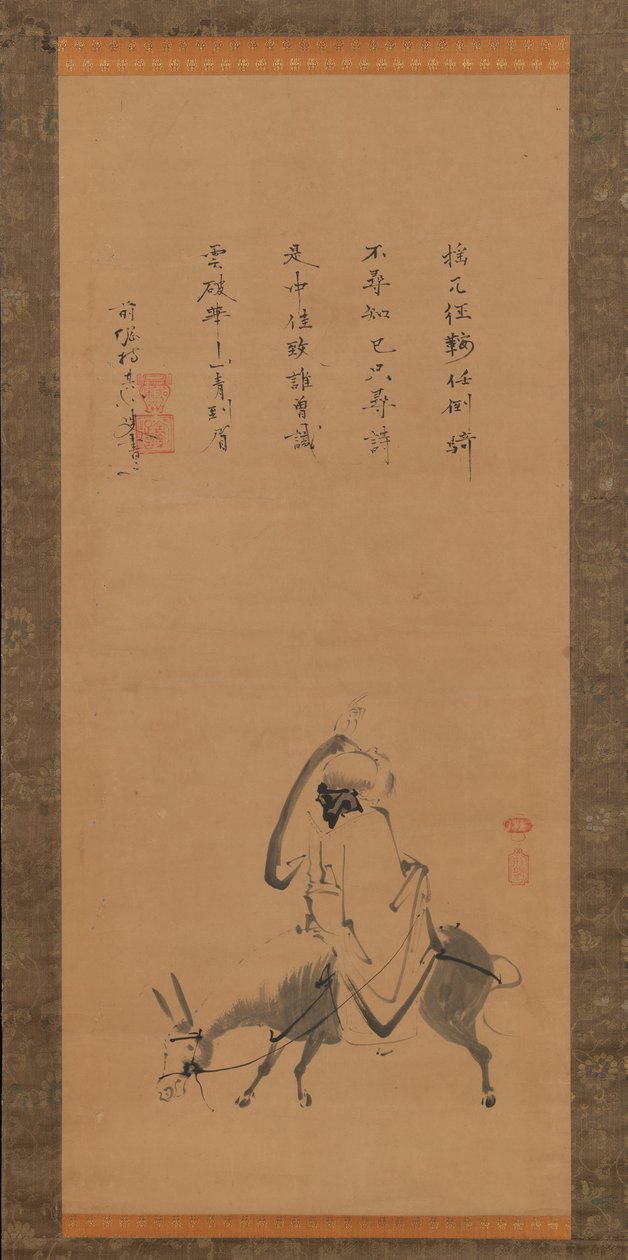 搖兀征鞍任倒騎
不尋知己只尋詩
是中佳致誰曾識
雲破華山青到眉
前總持 書